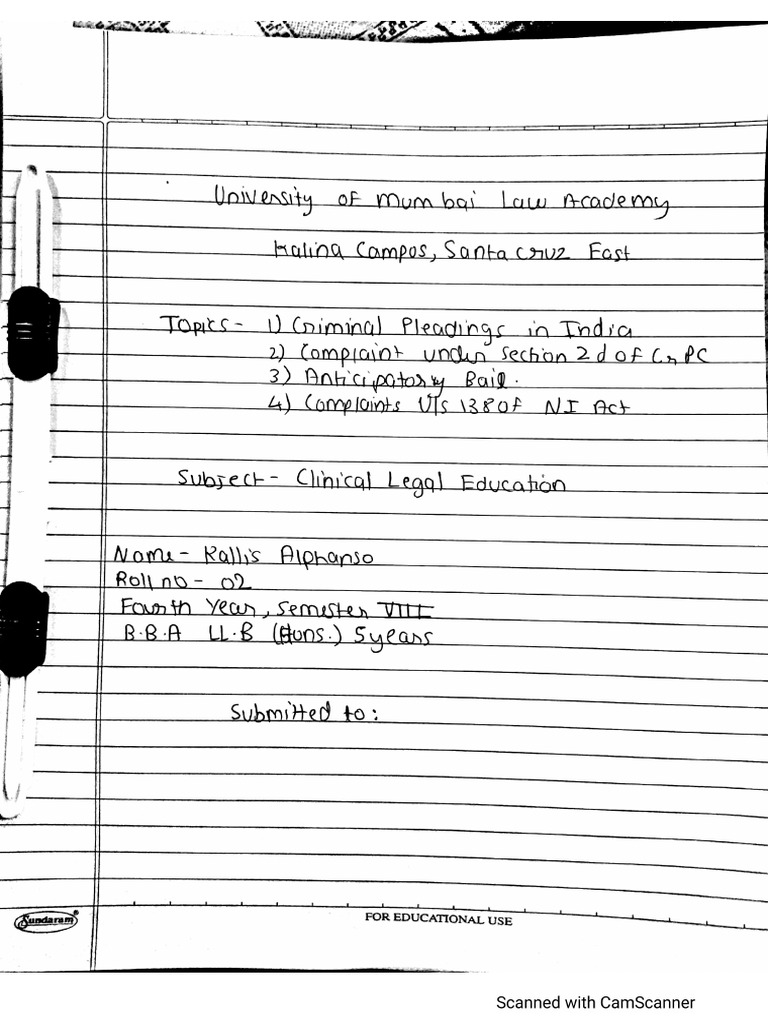 University of Mumbai Law Academy
Kalina Campos, Santacruz East
Topics- 1) Criminal Pleadings in India
2) Complaint under section 2d of CrPC
3) Anticipatory Bail.
4) Complaints U/s 138 of NI Act
Subject- Clinical Legal Education
Name- Kallis Alphanso
Roll no- 02
Fourth Year, Semester VIII
B.B.A LL.B (Huns.) 5 years
Submitted to:
Sundaram®
FOR EDUCATIONAL USE
Scanned with CamScanner